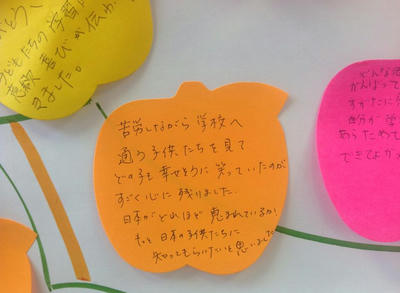 とう
子どもたちの学習
意欲 喜びが伝わ
きました。
苦労しながら学校へ
通う子供たちを見て
どの子も幸せそうに笑っていたのが
すごく心に残りました.
日本がどれほど恵まれているか
もっと日本の子供たちに
知ってもらいたいと思いました
どんな
がんばって
すがたに
自分が
あらためて
できてよか